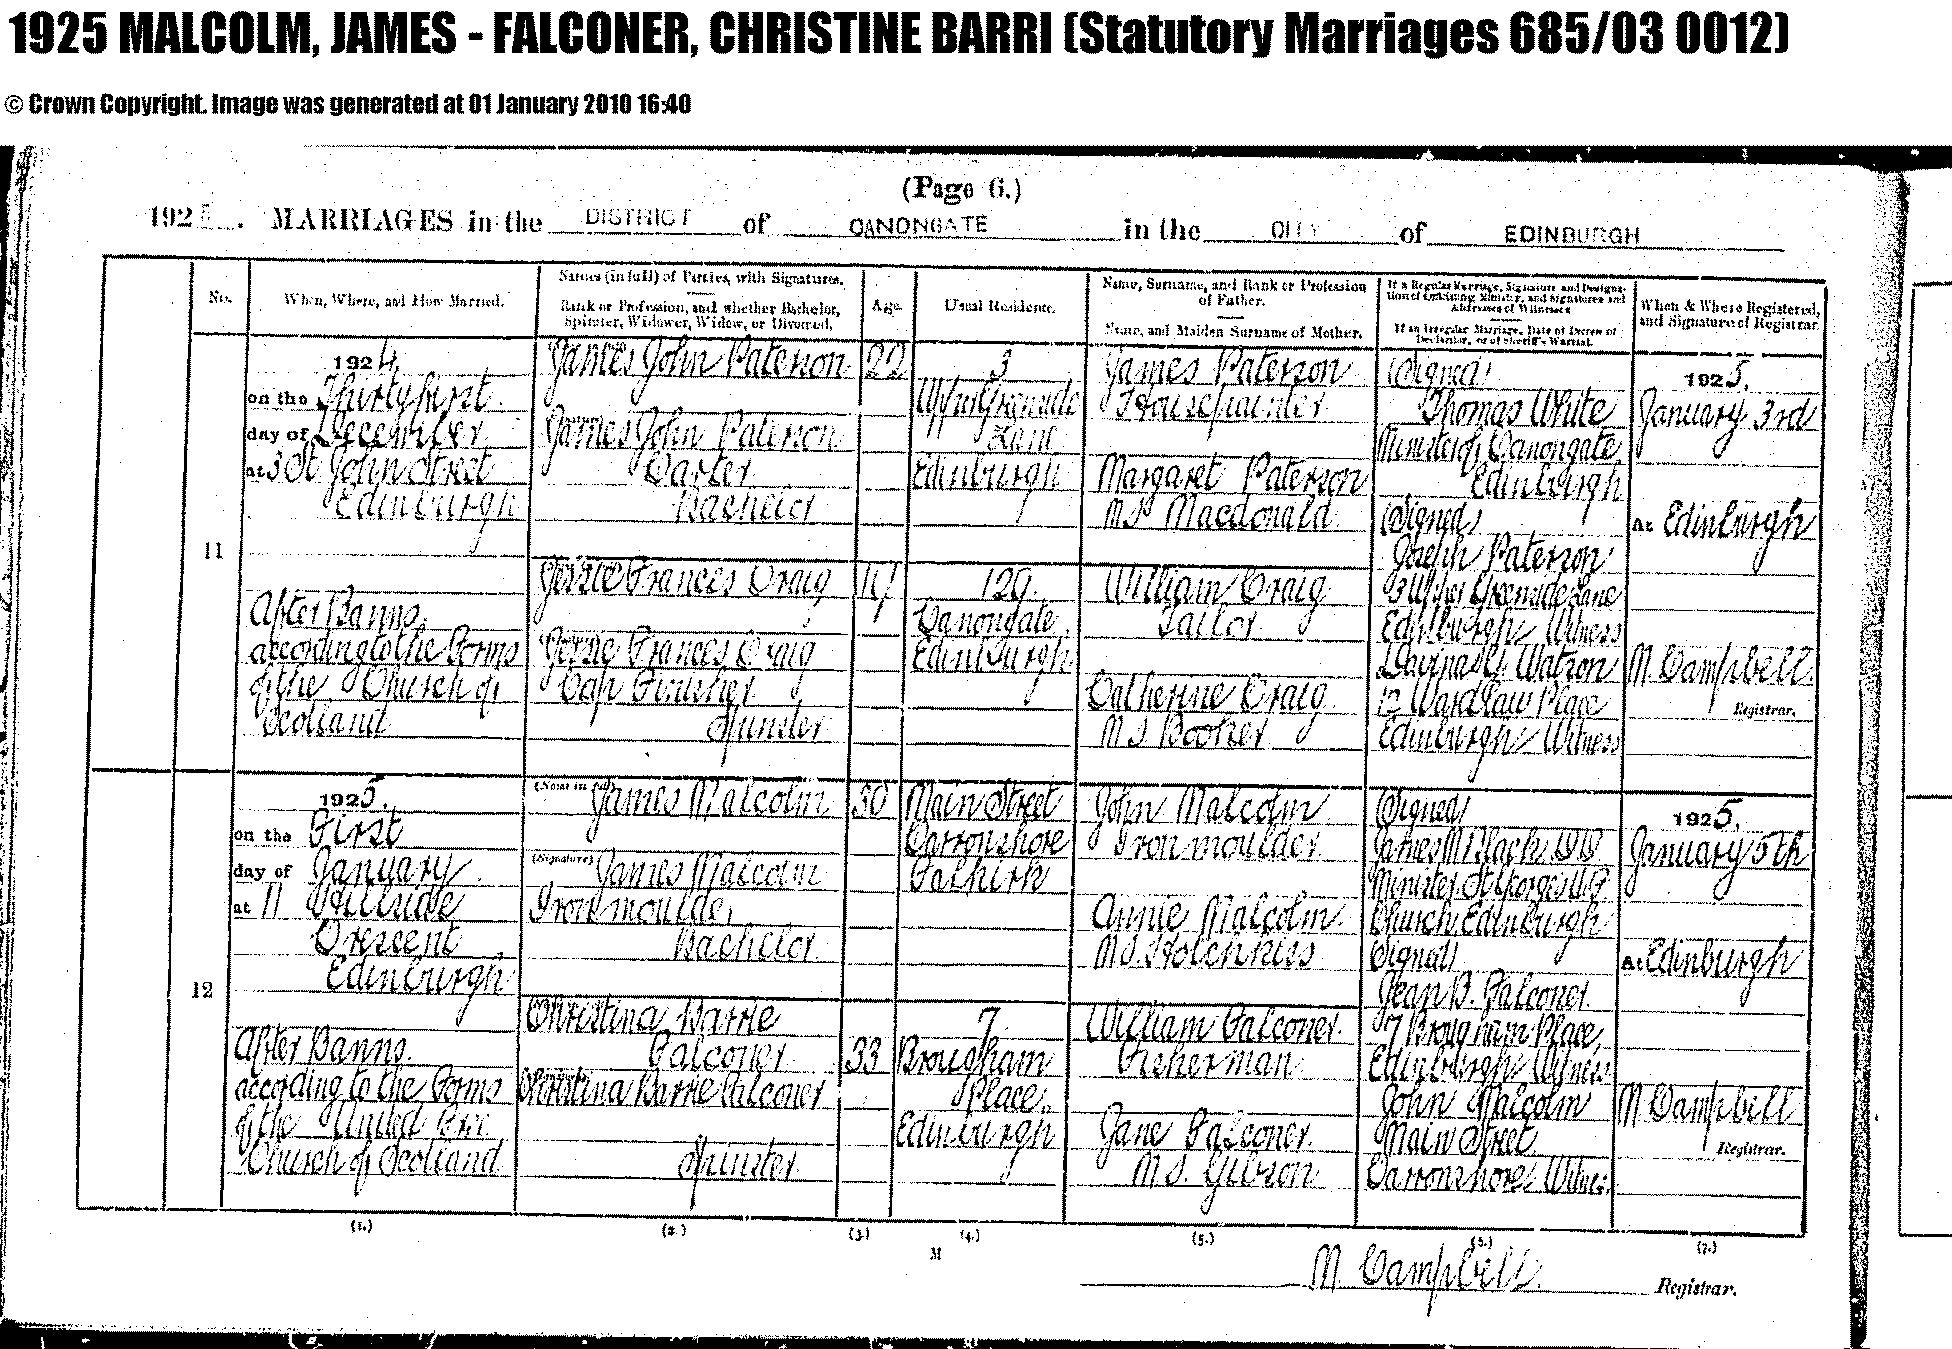 1925 MALCOLM, JAMES - FALCONER, CHRISTINE BARRI (Statutory Marriages 685/03 0012)
© Crown Copyright. Image was generated at 01 January 2010 16:40
(Page 6.)
1925. MARRIAGES in the DISTRICT of CANONGATE in the CITY of EDINBURGH
No.
When, Where, and How Married.
Names (in full) of Parties, with Signatures.
Rank or Profession, and whether Bachelor,
Spinster, Widower, Widow, or Divorced.
Age.
Usual Residence.
Name, Surname, and Rank or Profession
of Father.
Name, and Maiden Surname of Mother.
If a Regular Marriage, Signature and Designa-
tion of Officiating Minister, and Signatures and
Addresses of Witnesses
If an Irregular Marriage, Date of Decree of
Declarator, or of Sheriff's Warrant.
When & Where Registered,
and Signature of Registrar.
11
1924
on the Thirty first
day of December
at 3 St John Street
Edinburgh
After Banns,
according to the Forms
of the Church of
Scotland
James John Paterson
James John Paterson
Carter
Bachelor
Jessie Frances Craig
Jessie Frances Craig
Cap Finisher
Spinster
22
19
3
Upper Greenside
Lane
Edinburgh
129
Canongate
Edinburgh
James Paterson
Housepainter
Margaret Paterson
M.S. Macdonald
William Craig
Tailor
Catherine Craig
M S Booker
(Signed)
Thomas White
Minister of Canongate
Edinburgh
(Signed)
Joseph Paterson
3 Upper Greenside Lane
Edinburgh Witness
Watson
12 Wardlaw Place
Edinburgh Witness
1925.
January 3rd
At Edinburgh
M. Campbell
Registrar.
12
1925.
on the First
day of January
at 11 Hillside
Crescent
Edinburgh
After Banns.
according to the Forms
of the United Free
Church of Scotland
(Name in full) James Malcolm
(Signature) James Malcolm
Iron moulder
Bachelor
Christina Barrie
Falconer
Christina Barrie Falconer
Spinster
30
33
Main Street
Carronshore
Falkirk
7
Brougham
Place,
Edinburgh
John Malcolm
Iron moulder
Annie Malcolm
M.S. Hotchkiss
William Falconer
Fisherman
Jane Falconer
M.S. Gibson
(Signed)
James M Black
Minister St Georges U.F.
Church Edinburgh
(Signed)
Jean B. Falconer
7 Brougham Place,
Edinburgh Witness
John Malcolm
Main Street
Carronshore Witness
1925.
January 5th
At Edinburgh
M Campbell
Registrar.
(1.) (2.) (3.) (4.) (5.) (7.)
M
M Campbell Registrar.